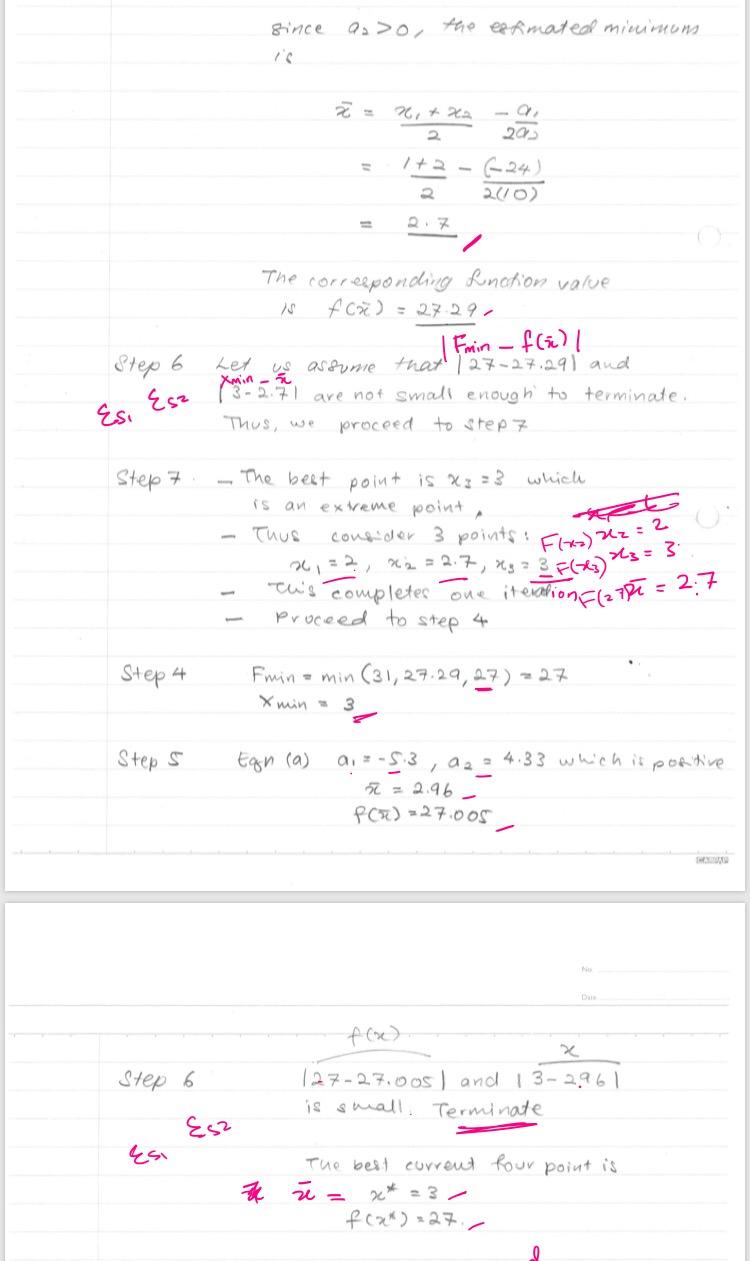 since a₂>0, the estimated minimum
is
x̄ = x₁ + x₂ / 2 - a₁ / 2a₂
= 1+2 / 2 - (-24) / 2(10)
= 2.7
The corresponding function value
is f(x̄) = 27.29
|Fmin - f(x̄)|
Step 6 Let us assume that |27-27.29| and
xmin - x̄
|3-2.7| are not small enough to terminate.
εs1 εs2
Thus, we proceed to step 7
Step 7. - The best point is x₃ = 3 which
is an extreme point,
- Thus consider 3 points:
F(x₂) x₂ = 2
x₁ = 2, x₂ = 2.7, x₃ = 3
F(x₃) x₃ = 3
- This completes one iteration
F(2.7) x̄ = 2.7
- Proceed to step 4
Step 4 Fmin = min (31, 27.29, 27) = 27
Xmin = 3
Step 5 Eqn (a) a₁ = -5.3, a₂ = 4.33 which is positive
x̄ = 2.96
f(x̄) = 27.005
CAMPAP
No
Date
f(x)
x
Step 6 |27-27.005| and |3-2.96|
is small. Terminate
εs2
εs1
The best current four point is
x̄ = x* = 3
f(x*) = 27.